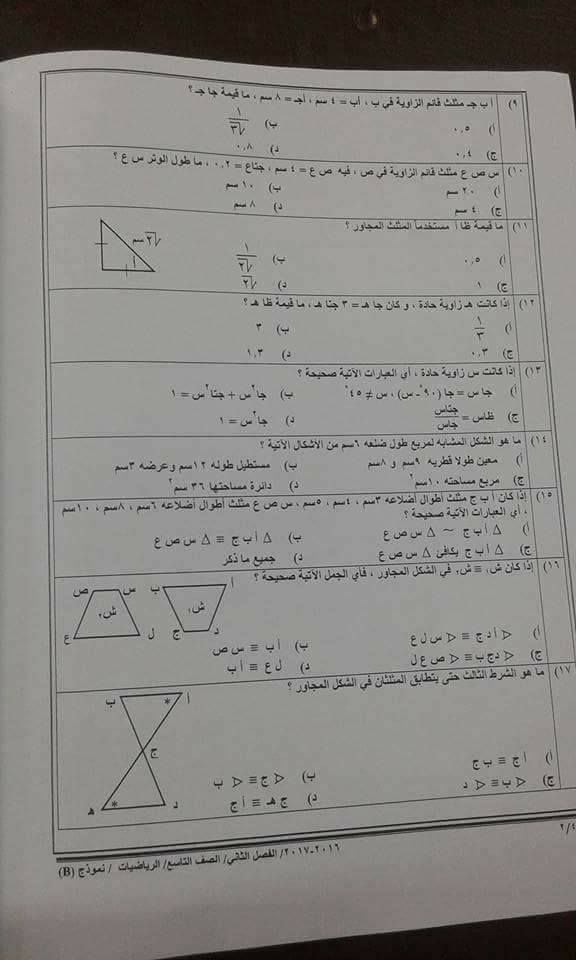 ٩) أ ب جـ مثلث قائم الزاوية في ب ، أب = ٤ سم ، أجـ = ٨ سم ، ما قيمة جا جـ ؟
أ) ٠,٥ ب) ١/√٣
ج) ٠,٤ د) ٠,٨
١٠) س ص ع مثلث قائم الزاوية في ص ، فيه ص ع = ٤ سم ، جتاع = ٠,٢ ، ما طول الوتر س ع ؟
أ) ٢٠ سم ب) ١٠ سم
ج) ٤ سم د) ٨ سم
١١) ما قيمة ظا أ مستخدماً المثلث المجاور ؟
√٢ سم
أ
أ) ٠,٥ ب) ١/√٢
ج) ١ د) √٢
١٢) إذا كانت هـ زاوية حادة ، و كان جا هـ = ٣ جتا هـ ، ما قيمة ظا هـ ؟
أ) ١/٣ ب) ٣
ج) ٠,٣ د) ١,٣
١٣) إذا كانت س زاوية حادة ، أي العبارات الآتية صحيحة ؟
أ) جا س = جا (٩٠° - س) ، س ≠ ٤٥° ب) جا٢س + جتا٢س = ١
ج) ظاس = جتاس/جاس د) جا٢س = ١
١٤) ما هو الشكل المشابه لمربع طول ضلعه ٦سم من الأشكال الآتية ؟
أ) معين طولا قطريه ٩سم و ٨سم ب) مستطيل طوله ١٢سم وعرضه ٣سم
ج) مربع مساحته ١٠سم٢ د) دائرة مساحتها ٣٦ سم٢
١٥) إذا كان أ ب ج مثلث أطوال أضلاعه ٣سم ، ٤سم ، ٥سم ، س ص ع مثلث أطوال أضلاعه ٦سم ، ٨سم ، ١٠سم
، أي العبارات الآتية صحيحة ؟
أ) Δ أ ب ج ~ Δ س ص ع ب) Δ أ ب ج ≡ Δ س ص ع
ج) Δ أ ب ج يكافئ Δ س ص ع د) جميع ما ذكر
١٦) إذا كان ش١ ≡ ش٢ في الشكل المجاور ، فأي الجمل الآتية صحيحة ؟
أ ب ش١ د ج
س ص ش٢ ل ع
أ) ∢ أ د ج ≡ ∢ س ل ع ب) أ ب ≡ س ص
ج) ∢ د ج ب ≡ ∢ ص ع ل د) ل ع ≡ أ ب
١٧) ما هو الشرط الثالث حتى يتطابق المثلثان في الشكل المجاور ؟
أ * ب
ج
د * هـ
أ) أ ج ≡ ب ج ب) ∢ ج ≡ ∢ ب
ج) ∢ ب ≡ ∢ د د) ج هـ ≡ أ ج
٢/٤
٢٠١٦-٢٠١٧/ الفصل الثاني/ الصف التاسع/ الرياضيات / نموذج (B)